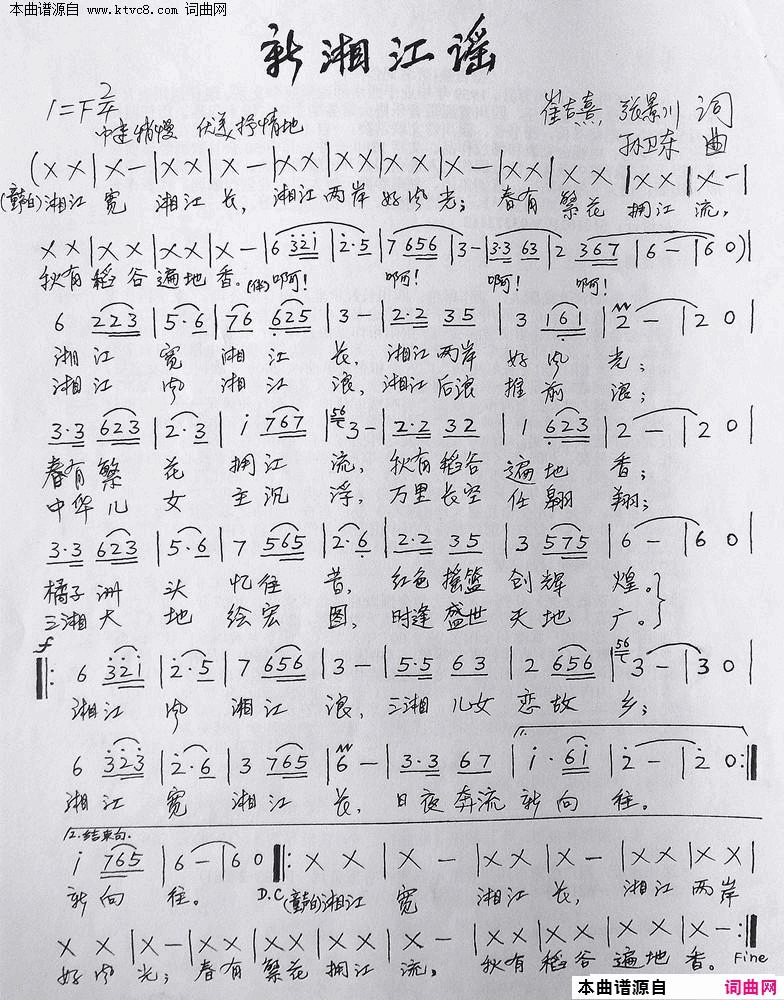 本曲谱源自 www.ktvc8.com 词曲网
新湘江谣
1=F 2/4
中速稍慢 优美抒情地
崔吉熹 张景川 词
孙卫东 曲
(X X | X - | X X | X - | X X | X X | X X | X - | X X | X X | X X | X - |
(童白)湘江 宽 湘江 长, 湘江 两岸 好风 光; 春有 繁花 拥江 流,
X X | X X | X X | X - | 6 321 | 2·5 | 7 656 | 3 - | 3·3 63 | 2 367 | 6 - | 6 0) |
秋有 稻谷 遍地 香。(伴)啊! 啊! 啊! 啊!
6 223 | 5·6 | 76 625 | 3 - | 2·2 35 | 3 161 | 2 - | 2 0 |
湘江 宽 湘江 长, 湘江两岸 好风 光;
湘江 风 湘江 浪, 湘江后浪 推前 浪;
3·3 623 | 2·3 | i 767 | 56 3 - | 2·2 32 | 1 623 | 2 - | 2 0 |
春有繁 花 拥江 流, 秋有稻谷 遍地 香;
中华儿 女 主沉 浮, 万里长空 任翱 翔;
3·3 623 | 5·6 | 7 565 | 2·6 | 2·2 35 | 3 575 | 6 - | 6 0 |
橘子洲 头 忆往 昔, 红色摇篮 创辉 煌。}
三湘大 地 绘宏 图, 时逢盛世 天地 广。}
f
‖: 6 321 | 2·5 | 7 656 | 3 - | 5·5 63 | 2 656 | 56 3 - | 3 0 |
湘江 风 湘江 浪, 三湘儿女 恋故 乡;
6 323 | 2·6 | 3 765 | 6 - | 3·3 67 | i·6i | 2 - | 2 0 :‖
湘江 宽 湘江 长, 日夜奔流 新向 往。
12.结束句.
i 765 | 6 - | 6 0 ‖: X X | X - | X X | X - | X X | X X |
新向 往。 D.C (童白)湘江 宽 湘江 长, 湘江 两岸
X X | X - | X X | X X | X X | X - | X X | X X | X X | X - :‖
好风 光; 春有 繁花 拥江 流, 秋有 稻谷 遍地 香。 Fine
本曲谱源自 词曲网